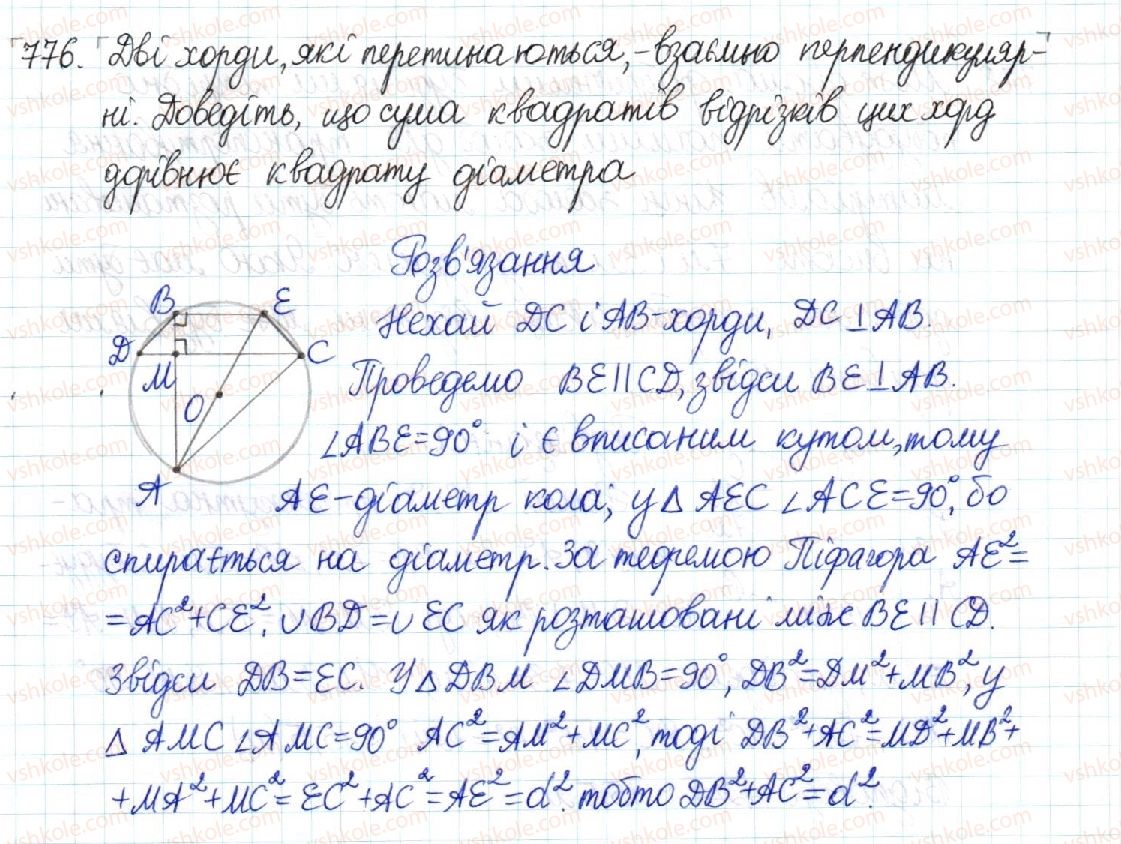 776. Дві хорди, які перетинаються, - взаємно перпендикуляр-
ні. Доведіть, що сума квадратів відрізків цих хорд
дорівнює квадрату діаметра
Розв'язання
Нехай DC і AB-хорди, DC⊥AB.
Проведемо BE||CD, звідси BE⊥AB.
∠ABE=90° і є вписаним кутом, тому
AE-діаметр кола; у △AEC ∠ACE=90°, бо
спирається на діаметр. За теоремою Піфагора AE²=
=AC²+CE². ∪BD=∪EC як розташовані між BE||CD.
Звідси DB=EC. У △DBM ∠DMB=90°, DB²=DM²+MB², у
△AMC ∠AMC=90° AC²=AM²+MC², тоді DB²+AC²=MD²+MB²+
+MA²+MC²=EC²+AC²=AE²=d². тобто DB²+AC²=d².
B E
D C
M
O
A
vshkole.com